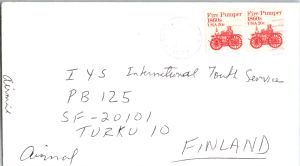 Fire Pumper Fire Pumper
1860s 1860s
USA 20c USA 20c
Airmail
I Y S International Youth Service
PB 125
SF-20101
TURKU 10
Airmail
FINLAND